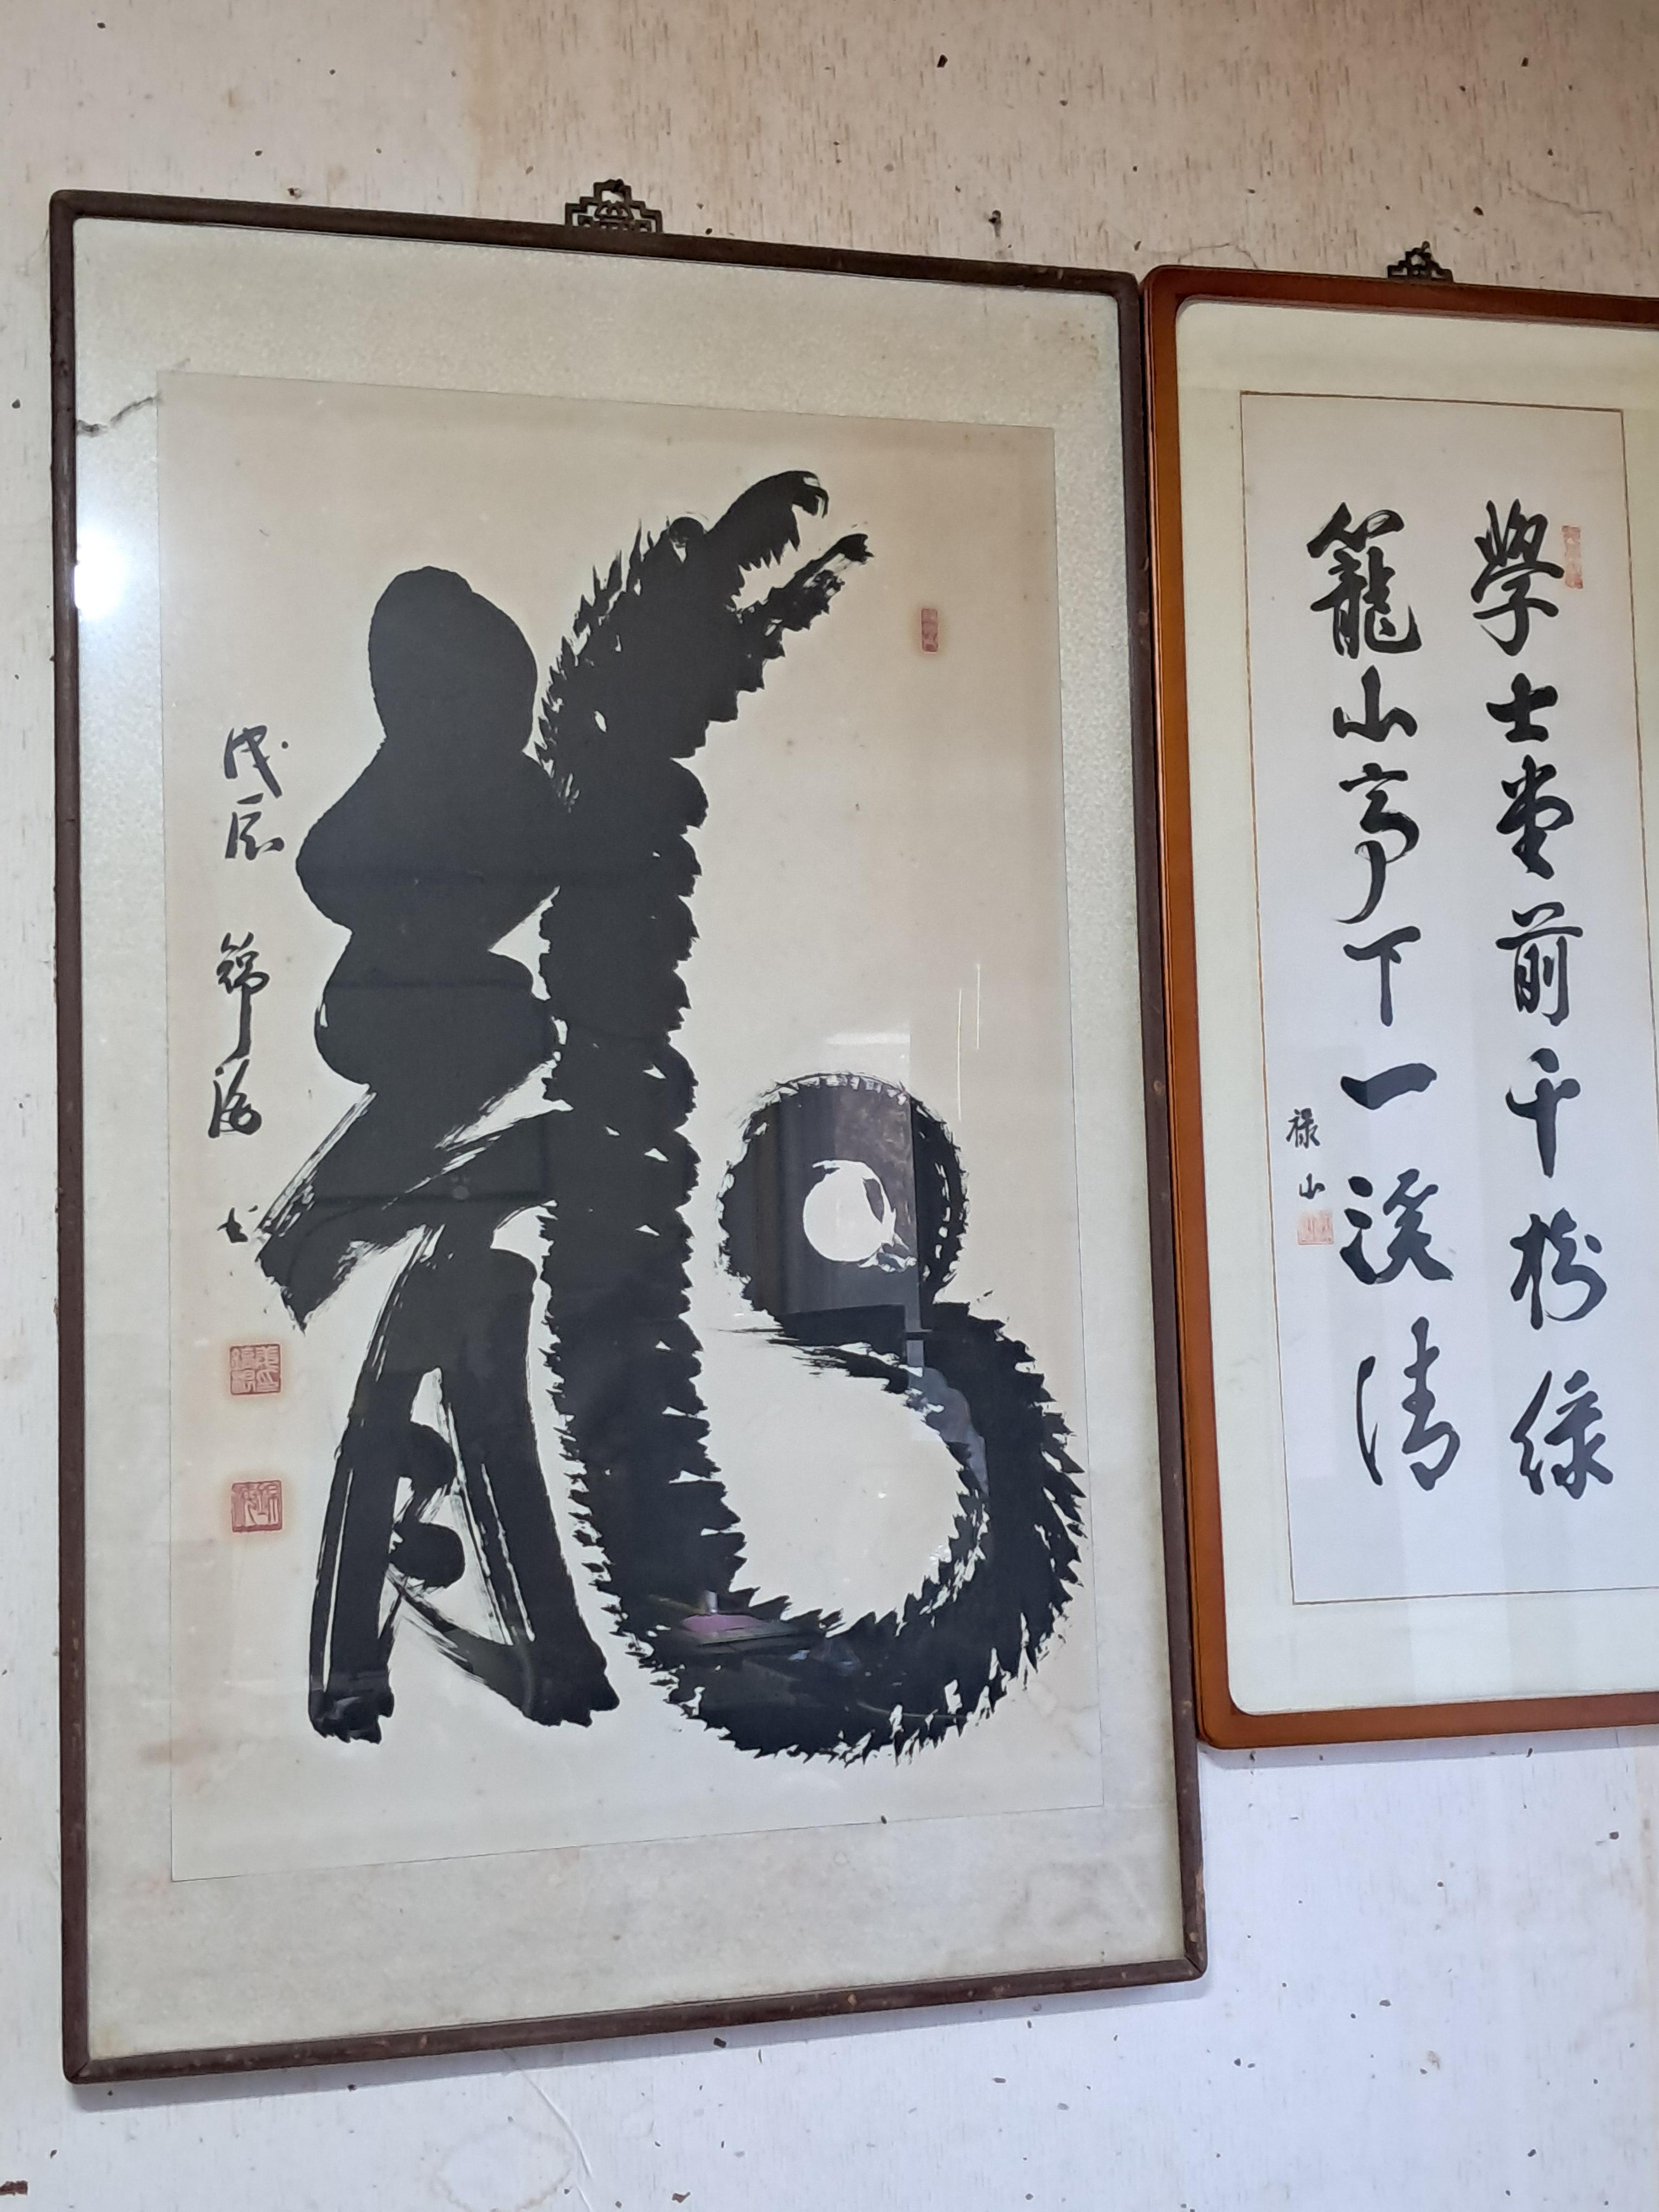 學士堂前千樹綠
籠山亭下一溪清
祿山
龍
戊辰 錦洛 书